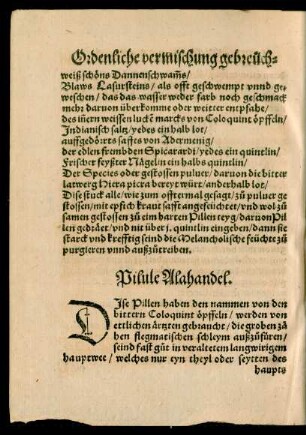 Ordenliche vermischung gebreüch⸗
weiß schöns Dannenschwam̃s/
Blaws Lasursteins/ als offt geschwempt vnnd ge⸗
weschen/ das das wasser weder farb noch geschmack
mehr daruon überkomme oder weitter entpfahe/
des iñern weissen lucke marcks von Coloquint öpffeln/
Indianisch saltz/ yedes ein halb lot/
auffgedörts safftes von Adermenig/
der edlen frembden Spicanardi/ yedes ein quintlin/
Frischer feyster Nägelin ein halbs quintlin/
Der Species oder gestossen puluer/ daruon die bitter
latwerg Hiera picra bereyt würt/ anderhalb lot/
Dise stuck alle/ wie zum offtermal gesagt/ zu puluer ge
stossen/ mit epfich kraut safft angefeüchtet/ vnd wol zů
samen gestossen zů eim harten Pillen teyg/ daruon Pil
len gedräet/ vnd nit über j. quintlin eingeben/ dann sie
starck vnd krefftig seind die Melancholische feüchte zů
purgieren vnnd außzůtreiben.
Pilule Alahandel.
DIse Pillen haben den nammen von den
bittern Coloquint öpffeln/ werden von
ettlichen ärtzten gebraucht/ die groben zä
hen flegmatischen schleym außzůfüren/
seind fast gůt in veraltetem langwirigem
hauptwee/ welches nur eyn theyl oder seytten des
haupts